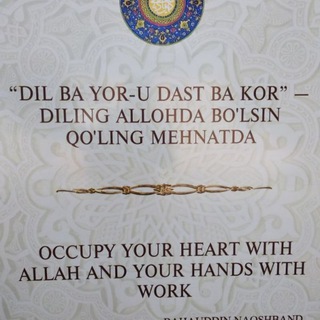 “DIL BA YOR-U DAST BA KOR” —
DILING ALLOHDA BO'LSIN
QO'LING MEHNATDA
OCCUPY YOUR HEART WITH
ALLAH AND YOUR HANDS WITH
WORK
BAHAUDDIN NAQSHBAND